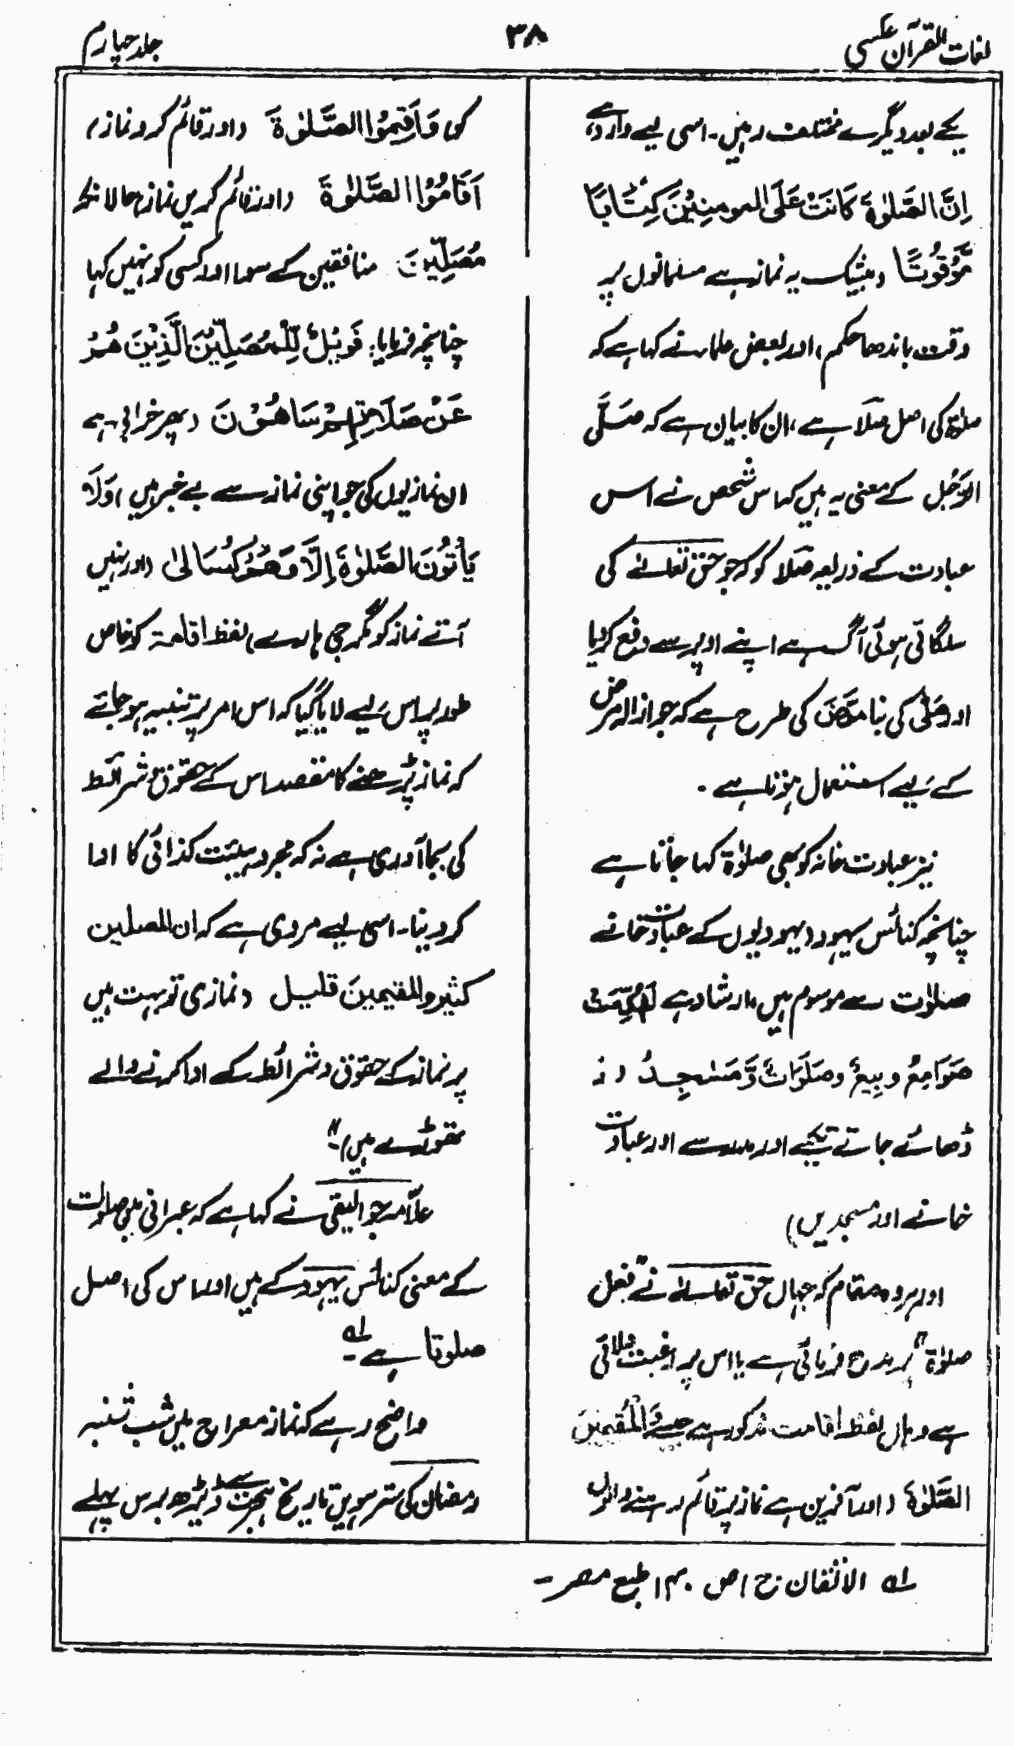 لغات القرآن عکسی
۳۸
جلد چہارم
یکے بعد دیگرے مختلف رہیں۔ اسی لیے وارد ہے
اِنَّ الصَّلٰوةَ کَانَتْ عَلَى المومِنِیْنَ کِتَابًا
مَّوْقُوتًا (بیشک یہ نماز ہے مسلمانوں پر
وقت باندھا حکم) اور بعض علماء نے کہا ہے کہ
صلوٰۃ کی اصل صَلَا ہے، ان کا بیان ہے کہ صَلَّى
الرَّجُلُ کے معنی یہ ہیں کہ اس شخص نے اس
عبادت کے ذریعہ صَلَا کو کہ جو حق تعالےٰ کی
سلگائی ہوئی آگ ہے اپنے اوپر سے دفع کر دیا
اور صَلّٰی کی بنا مَرَّضَ کی طرح ہے کہ جو ازالہ مرض
کے لیے استعمال ہوتا ہے۔
نیز عبادت خانہ کو بھی صلوٰۃ کہا جاتا ہے
چنانچہ کنائس یہود (یہودیوں کے عبادت خانے
صلوٰت سے موسوم ہیں، ارشاد ہے لَهُدِّمَتْ
صَوَامِعُ وبِیَعٌ وصَلَوَاتٌ وَّمَسٰجِدُ (تو
ڈھائے جاتے تکیے اور مدرسے اور عبادت
خانے اور مسجدیں)
اور ہر وہ مقام کہ جہاں حق تعالےٰ نے فعل
صلوٰۃ پر مدح فرمائی ہے یا اس پر رغبت دلائی
ہے وہاں لفظ اقامت مذکور ہے جیسے وَالْمُقِیْمِیْنَ
الصَّلٰوةَ (اور آفرین ہے نماز پر قائم رہنے والوں
کو) وَاَقِیْمُوا الصَّلٰوةَ (اور قائم کرو نماز)
اَقَامُوْا الصَّلٰوةَ (اور قائم کریں نماز) حالانکہ
مُصَلِّیْنَ منافقین کے سوا اور کسی کو نہیں کہا
چنانچہ فرمایا: فَوَیْلٌ لِّلْمُصَلِّیْنَ الَّذِیْنَ هُمْ
عَنْ صَلَاتِهِمْ سَاهُوْنَ (پھر خرابی ہے
ان نمازیوں کی جو اپنی نماز سے بے خبر ہیں) وَلَا
یَأْتُوْنَ الصَّلٰوةَ اِلَّا وَهُمْ کُسَالٰى (اور نہیں
آتے نماز کو مگر جی ہارے) لفظ اقامۃ کو خاص
طور پر اس لیے لایا گیا کہ اس امر پر تنبیہ ہو جائے
کہ نماز پڑھنے کا مقصد اس کے حقوق و شرائط
کی بجا آوری ہے نہ کہ مجرد ہیئت کذائی کا ادا
کر دینا۔ اسی لیے مروی ہے کہ ان المصلین
کثیر والمقیمین قلیل (نمازی تو بہت ہیں
پر نماز کے حقوق و شرائط کے ادا کرنے والے
تھوڑے ہیں)"۔
علامہ جوالیقی نے کہا ہے کہ عبرانی میں صلوٰت
کے معنی کنائس یہود کے ہیں اور اس کی اصل
صلوتا ہے ۔لہ
واضح رہے کہ نماز معراج میں شب شنبہ
رمضان کی سترھویں تاریخ ہجرت سے ڈیڑھ برس پہلے
لہ الاتقان ج ۱ ص ۱۴۰ طبع مصر۔